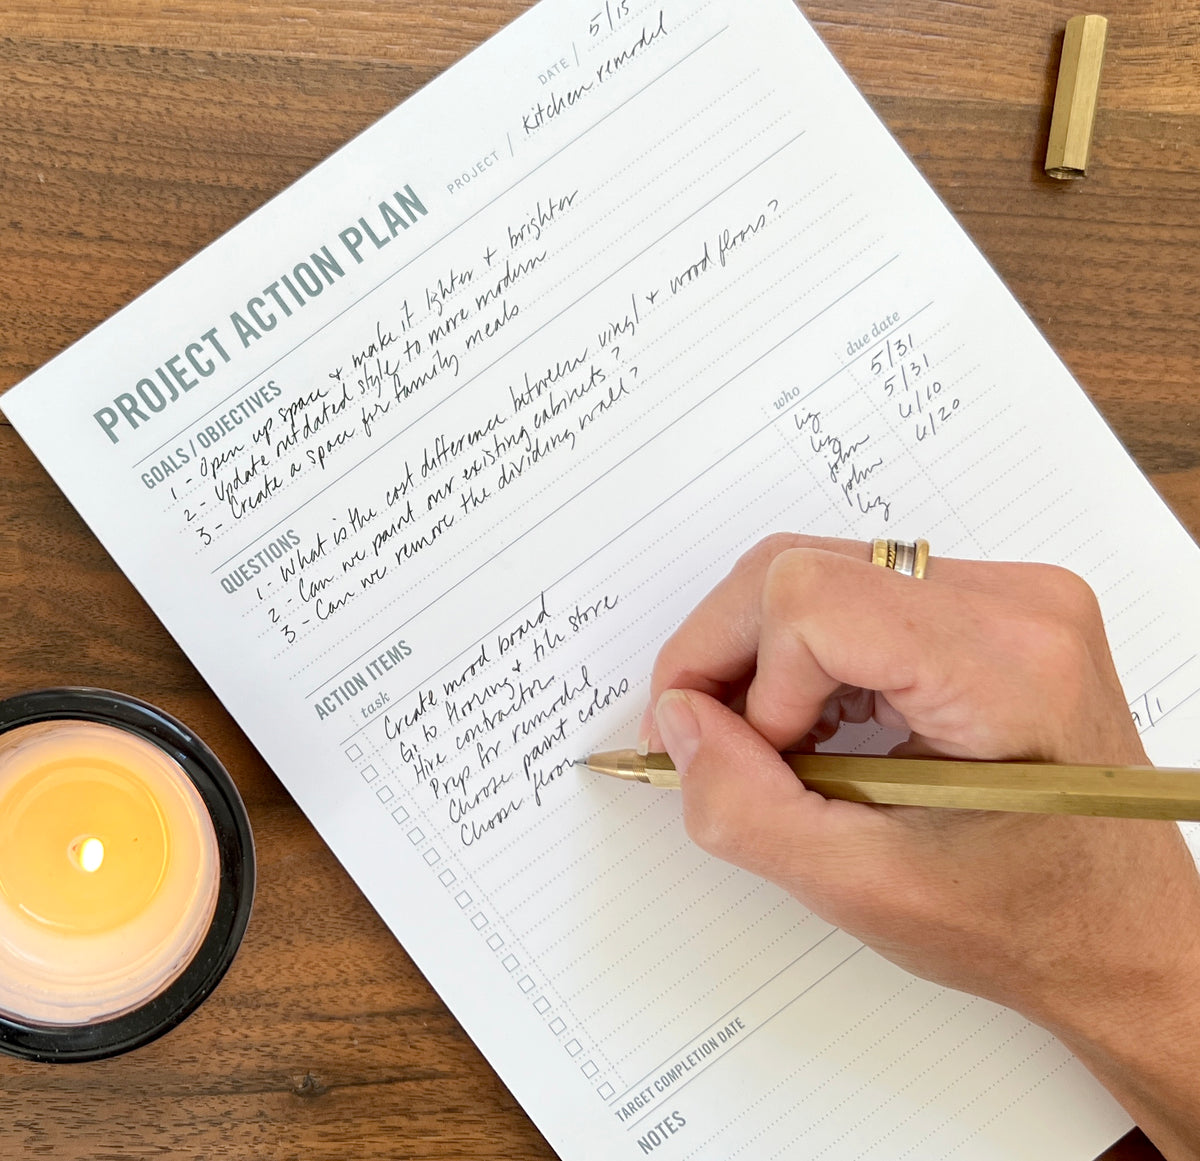 DATE / 5/15
PROJECT ACTION PLAN PROJECT / Kitchen remodel
GOALS / OBJECTIVES
1 - Open up space & make it lighter + brighter
2 - Update outdated style to more modern
3 - Create a space for family meals
QUESTIONS
1 - What is the cost difference between vinyl + wood floors?
2 - Can we paint our existing cabinets?
3 - Can we remove the dividing wall?
ACTION ITEMS
task who due date
Create mood board liz 5/31
Go to flooring + tile store liz 5/31
Hire contractor john 6/10
Prep for remodel john 6/20
Choose paint colors liz
Choose floor
TARGET COMPLETION DATE 9/1
NOTES